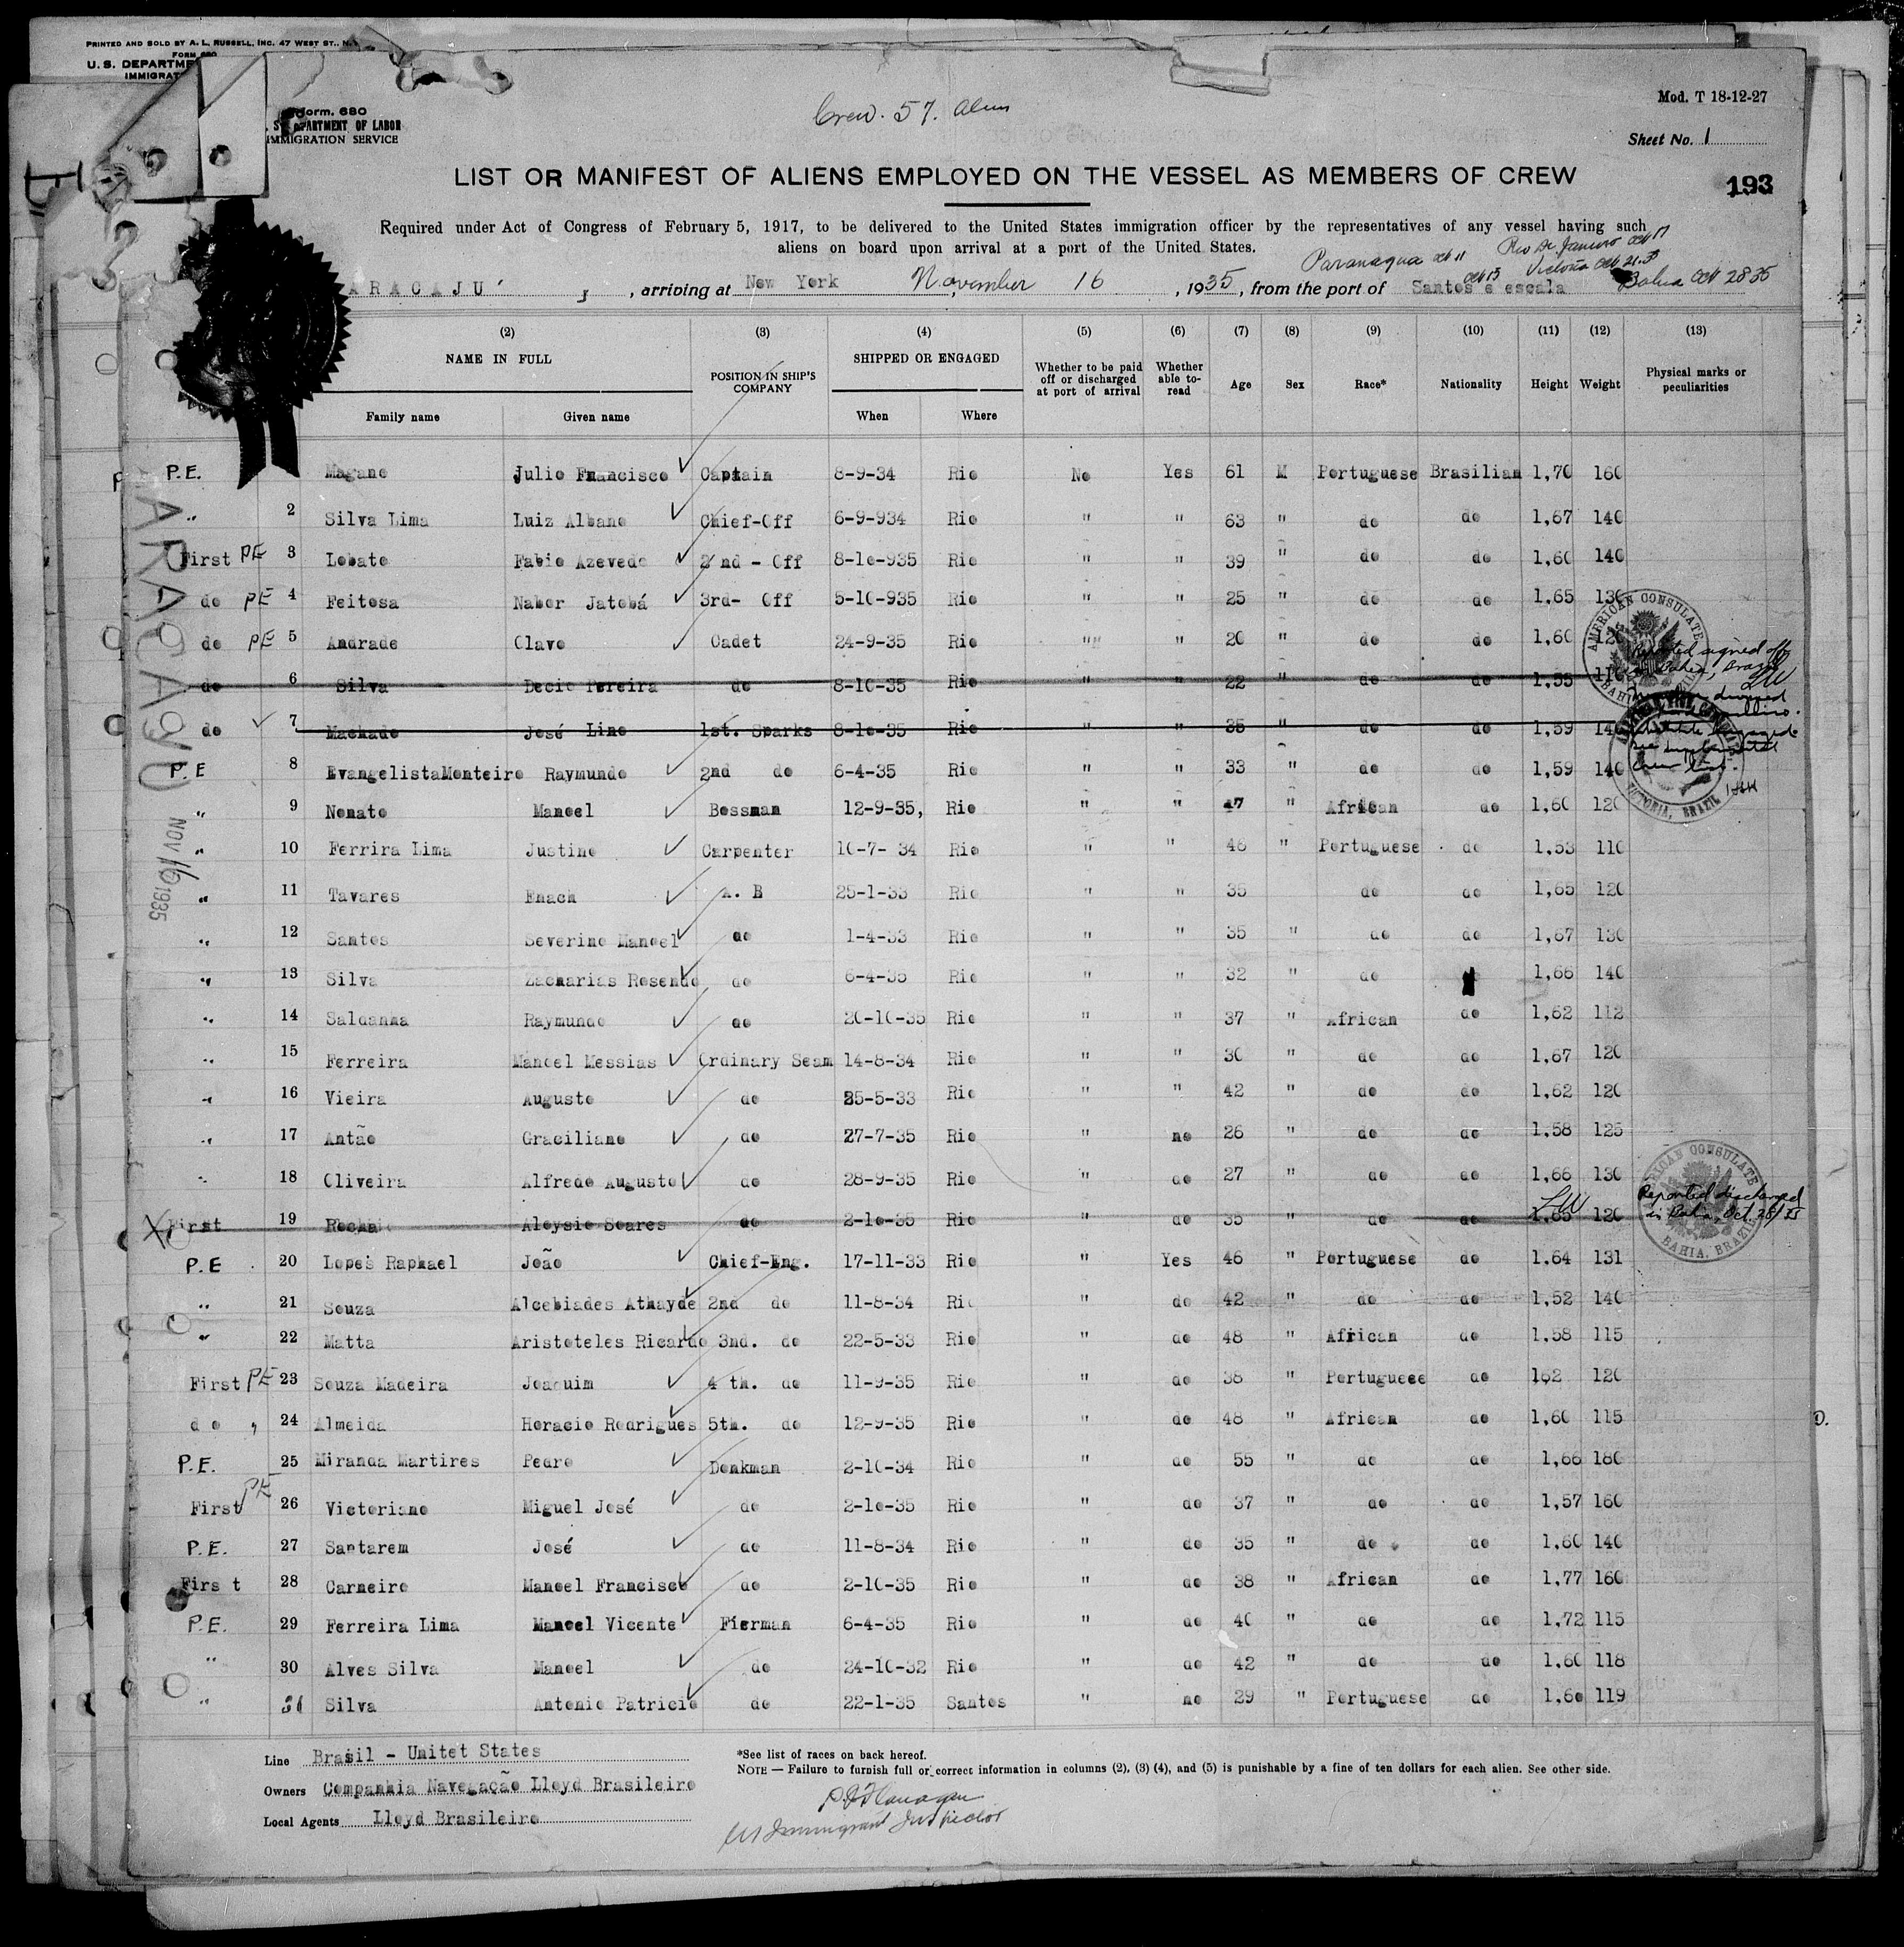 PRINTED AND SOLD BY A. L. RUSSELL, INC. 47 WEST ST., N.
FORM 680
U. S. DEPARTME
IMMIGRAT
Form. 680
S. DEPARTMENT OF LABOR
IMMIGRATION SERVICE
Crew. 57. Alien
Mod. T 18-12-27
Sheet No. 1
LIST OR MANIFEST OF ALIENS EMPLOYED ON THE VESSEL AS MEMBERS OF CREW
193
Required under Act of Congress of February 5, 1917, to be delivered to the United States immigration officer by the representatives of any vessel having such
aliens on board upon arrival at a port of the United States.
Paranagua Oct 11 Rio De Janeiro Oct 17
Oct 13 Victoria Oct 21.35
ARACAJU' , arriving at New York November 16 , 1935, from the port of Santos e escala Bahia Oct 28 35
(2) (3) (4) (5) (6) (7) (8) (9) (10) (11) (12) (13)
NAME IN FULL POSITION IN SHIP'S COMPANY SHIPPED OR ENGAGED Whether to be paid off or discharged at port of arrival Whether able to- read Age Sex Race* Nationality Height Weight Physical marks or peculiarities
Family name Given name When Where
P.E. Magano Julio Francisco Captain 8-9-34 Rio No Yes 61 M Portuguese Brasilian 1,70 160
" 2 Silva Lima Luiz Albano Chief-Off 6-9-934 Rio " " 63 " do do 1,67 140
First PE 3 Lobato Fabio Azevedo 2 nd - Off 8-10-935 Rio " " 39 " do do 1,60 140
do PE 4 Feitosa Nabor Jatobá 3rd- Off 5-10-935 Rio " " 25 " do do 1,65 130
do PE 5 Andrade Olavo Cadet 24-9-35 Rio " " 20 " do do 1,60 120
do 6 Silva Decio Pereira do 8-10-35 Rio " " 22 " do do 1,55 110
do 7 Machado José Lino 1st. Sparks 8-10-35 Rio " " 35 " do do 1,59 140
P.E 8 EvangelistaMonteiro Raymundo 2nd do 6-4-35 Rio " " 33 " do do 1,59 140
" 9 Nonato Manoel Bossman 12-9-35, Rio " " 47 " African do 1,60 120
" 10 Ferrira Lima Justino Carpenter 10-7- 34 Rio " " 46 " Portuguese do 1,53 110
" 11 Tavares Enach A. B 25-1-33 Rio " " 35 do do 1,65 120
" 12 Santos Severino Manoel do 1-4-33 Rio " " 35 " do do 1,67 130
" 13 Silva Zacharias Resendo do 6-4-35 Rio " " 32 " do 1,66 140
" 14 Saldanha Raymundo do 20-10-35 Rio " " 37 " African do 1,62 112
" 15 Ferreira Manoel Messias Ordinary Seam 14-8-34 Rio " " 30 " do do 1,67 120
" 16 Vieira Augusto do 25-5-33 Rio " " 42 " do do 1,62 120
" 17 Antão Graciliano do 27-7-35 Rio " no 26 " do do 1,58 125
" 18 Oliveira Alfredo Augusto do 28-9-35 Rio " do 27 " do do 1,66 130
X First 19 Rocha Aloysio Soares do 2-10-35 Rio " do 35 " do do 1,65 120
P.E 20 Lopes Raphael João Chief-Eng. 17-11-33 Rio " Yes 46 " Portuguese do 1.64 131
" 21 Souza Alcebiades Athayde 2nd do 11-8-34 Rio " do 42 " do do 1,52 140
" 22 Matta Aristoteles Ricardo 3nd. do 22-5-33 Rio " do 48 " African do 1.58 115
First PE 23 Souza Madeira Joaquim 4 th. do 11-9-35 Rio " do 38 " Portuguese do 162 120
do " 24 Almeida Horacio Rodrigues 5th. do 12-9-35 Rio " do 48 " African do 1,60 115
P.E. 25 Miranda Martires Pedro Donkman 2-10-34 Rio " do 55 " do do 1,66 180
First PE 26 Victoriano Miguel José do 2-10-35 Rio " do 37 " do do 1,57 160
P.E. 27 Santarem José do 11-8-34 Rio " do 35 " do do 1,60 140
First 28 Carneiro Manoel Francisco do 2-10-35 Rio " do 38 " African do 1,77 160
P.E. 29 Ferreira Lima Manoel Vicente Fierman 6-4-35 Rio " do 40 " do do 1,72 115
" 30 Alves Silva Manoel do 24-10-32 Rio " do 42 " do do 1,60 118
" 31 Silva Antonio Patricio do 22-1-35 Santos " no 29 " Portuguese do 1,60 119
ARACAJU
NOV 16 1935
AMERICAN CONSULATE
BAHIA, BRAZIL
Reported signed off
Bahia, Brazil
LW
VICTORIA, BRAZIL
substitute engaged
see supplemental
crew list.
AMERICAN CONSULATE
BAHIA, BRAZIL
LW
Reported discharged
in Bahia, Oct. 28/35
Line Brasil - Unitet States
Owners Companhia Navegação Lloyd Brasileiro
Local Agents Lloyd Brasileiro
*See list of races on back hereof.
NOTE — Failure to furnish full or correct information in columns (2), (3) (4), and (5) is punishable by a fine of ten dollars for each alien. See other side.
P. J. Flanagan
US Immigrant Inspector